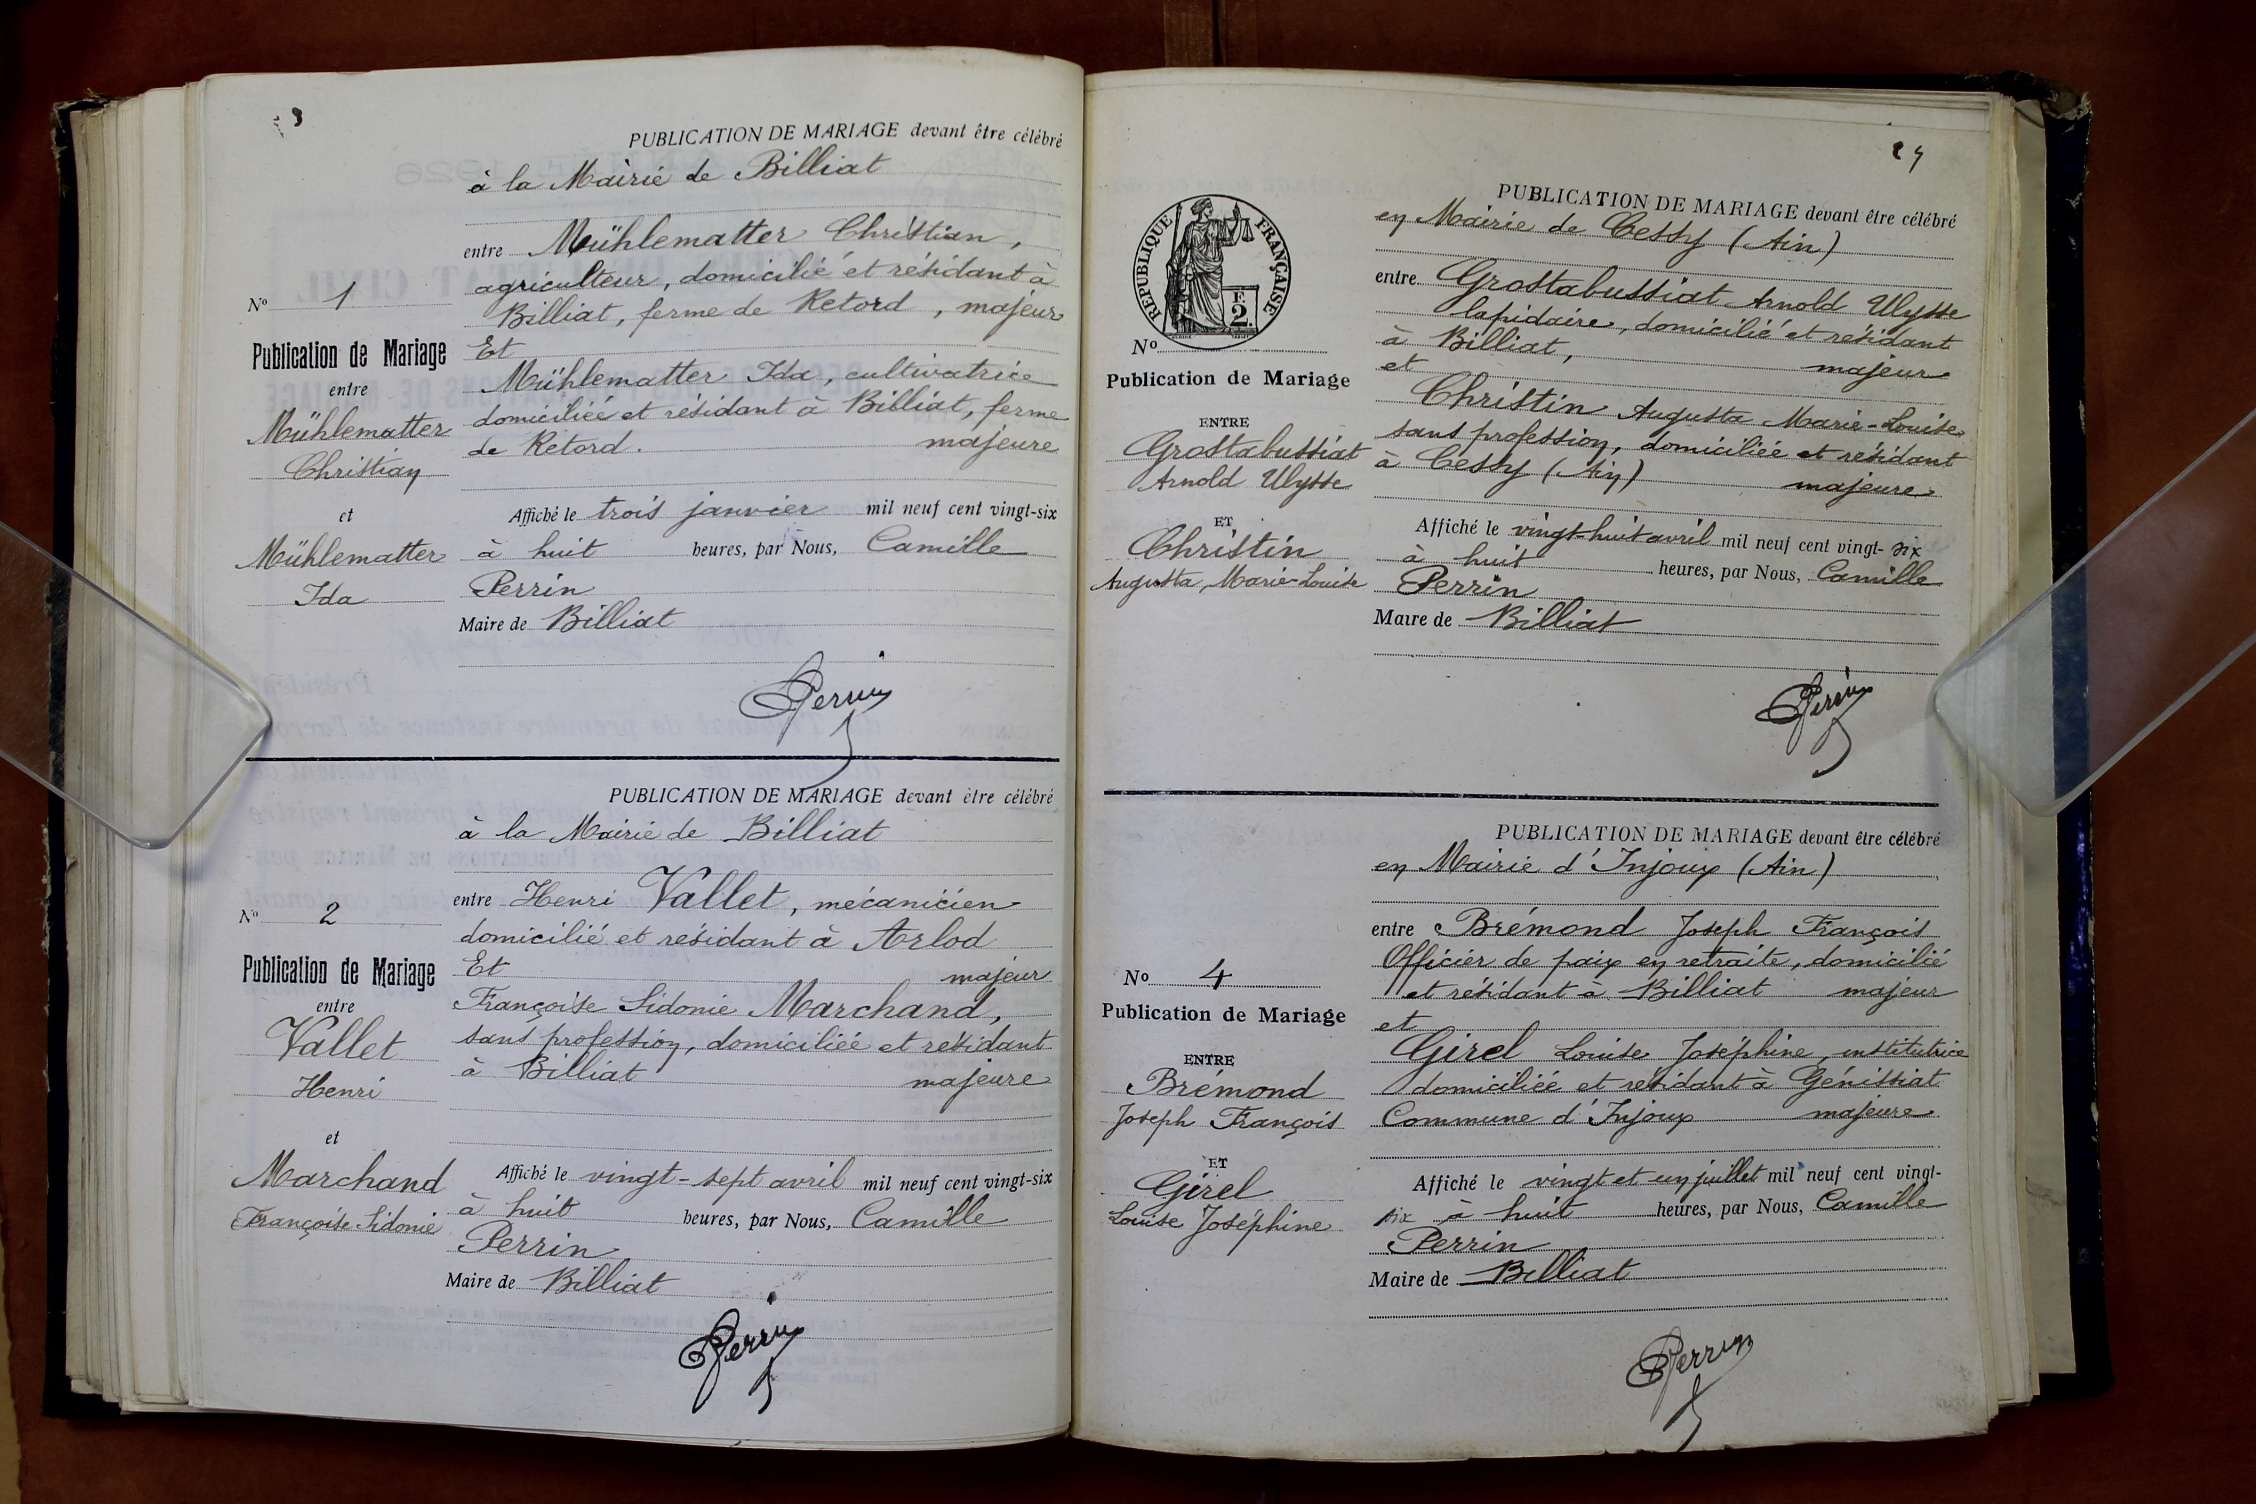 3
PUBLICATION DE MARIAGE devant être célébré
à la Mairie de Billiat
entre Mühlematter Christian,
agriculteur, domicilié et résidant à
Billiat, ferme de Retord, majeur
Et
Mühlematter Ida, cultivatrice
domiciliée et résidant à Billiat, ferme
de Retord. majeure
Affiché le trois janvier mil neuf cent vingt-six
à huit heures, par Nous, Camille
Perrin
Maire de Billiat
Perrin
N° 1
Publication de Mariage
entre
Mühlematter
Christian
et
Mühlematter
Ida
PUBLICATION DE MARIAGE devant être célébré
à la Mairie de Billiat
entre Henri Vallet, mécanicien
domicilié et résidant à Arlod
Et majeur
Françoise Sidonie Marchand,
sans profession, domiciliée et résidant
à Billiat majeure
Affiché le vingt-sept avril mil neuf cent vingt-six
à huit heures, par Nous, Camille
Perrin
Maire de Billiat
Perrin
N° 2
Publication de Mariage
entre
Vallet
Henri
et
Marchand
Françoise Sidonie
PUBLICATION DE MARIAGE devant être célébré
en Mairie de Cessy (Ain)
entre Grostabussiat Arnold Ulysse
lapidaire, domicilié et résidant
à Billiat, majeur
et
Christin Augusta Marie-Louise
sans profession, domiciliée et résidant
à Cessy (Ain) majeure
Affiché le vingt-huit avril mil neuf cent vingt-six
à huit heures, par Nous, Camille
Perrin
Maire de Billiat
Perrin
REPUBLIQUE FRANÇAISE
F
2
N°
Publication de Mariage
ENTRE
Grostabussiat
Arnold Ulysse
ET
Christin
Augusta, Marie-Louise
PUBLICATION DE MARIAGE devant être célébré
en Mairie d'Injoux (Ain)
entre Brémond Joseph François
Officier de paix en retraite, domicilié
et résidant à Billiat majeur
et
Girel Louise Joséphine, institutrice
domiciliée et résidant à Génissiat
Commune d'Injoux majeure
Affiché le vingt et un juillet mil neuf cent vingt-
six à huit heures, par Nous, Camille
Perrin
Maire de Billiat
Perrin
N° 4
Publication de Mariage
ENTRE
Brémond
Joseph François
ET
Girel
Louise Joséphine